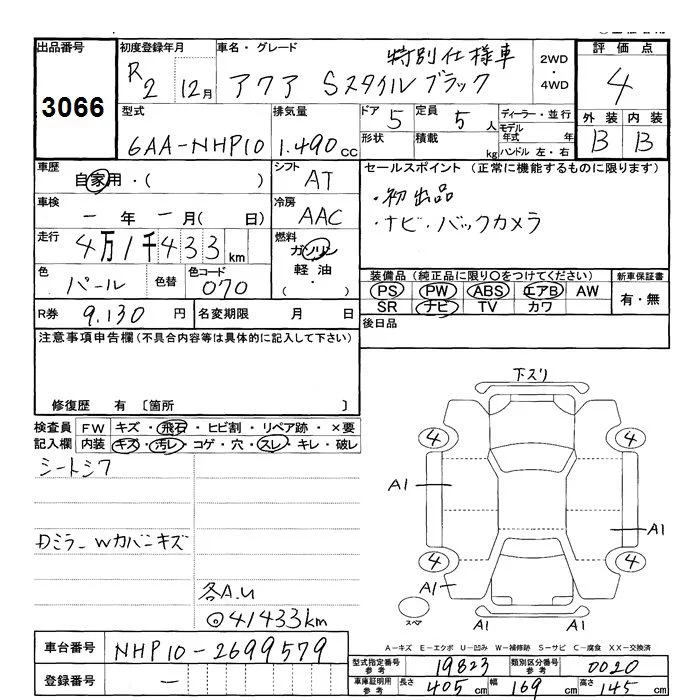 出品番号
3066
初度登録年月
R2 12月
車名・グレード
特別仕様車
アクア Sスタイルブラック
2WD
・
4WD
評価点
4
外装 内装
B B
型式
6AA-NHP10
排気量
1.490cc
ドア 5
定員 5人
形状
積載 kg
ディーラー・並行
モデル年式 年
ハンドル 左・右
車歴
自家用・( )
シフト
AT
セールスポイント(正常に機能するものに限ります)
・初出品
・ナビ・バックカメラ
車検
一年一月( 日)
冷房
AAC
走行
4万1千433km
燃料
ガソリン
軽油
( ・ )
色
パール
色替
色コード
070
装備品(純正品に限り○をつけてください)
PS PW ABS エアB AW
SR ナビ TV カワ
新車保証書
有・無
R券
9.130円
名変期限 月 日
後日品
注意事項申告欄(不具合内容等は具体的に記入して下さい)
修復歴 有 〔箇所 〕
検査員 FW キズ・飛石・ヒビ割・リペア跡・×要
記入欄 内装 キズ・汚レ・コゲ・穴・スレ・キレ・破レ
シートシワ
Dミラー Wカバーキズ
各A.U
◎41433km
下スリ
4
4
A1
A1
4
4
A1
スペア
A-キズ E-エクボ U-凹み W-補修跡 S-サビ C-腐食 XX-交換済
車台番号
NHP10-2699579
登録番号
一
型式指定番号参考
19823
類別区分番号参考
0020
車庫証明用参考
長さ 405cm
幅 169cm
高さ 145cm